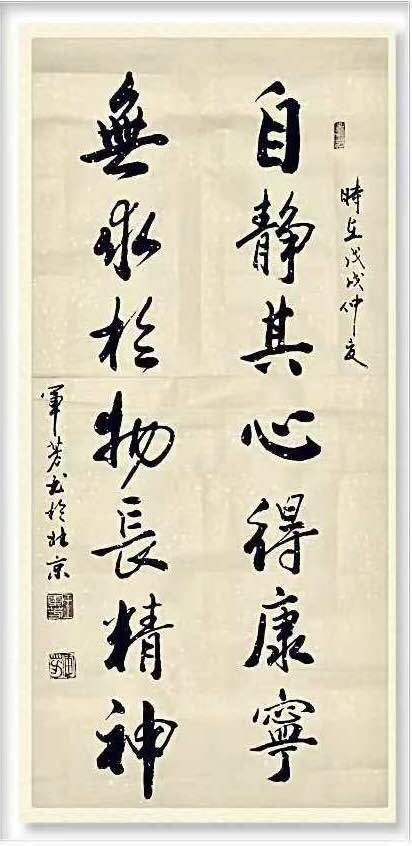 時在戊戌仲夏
自静其心得康寧
無求於物長精神
軍芳书於北京